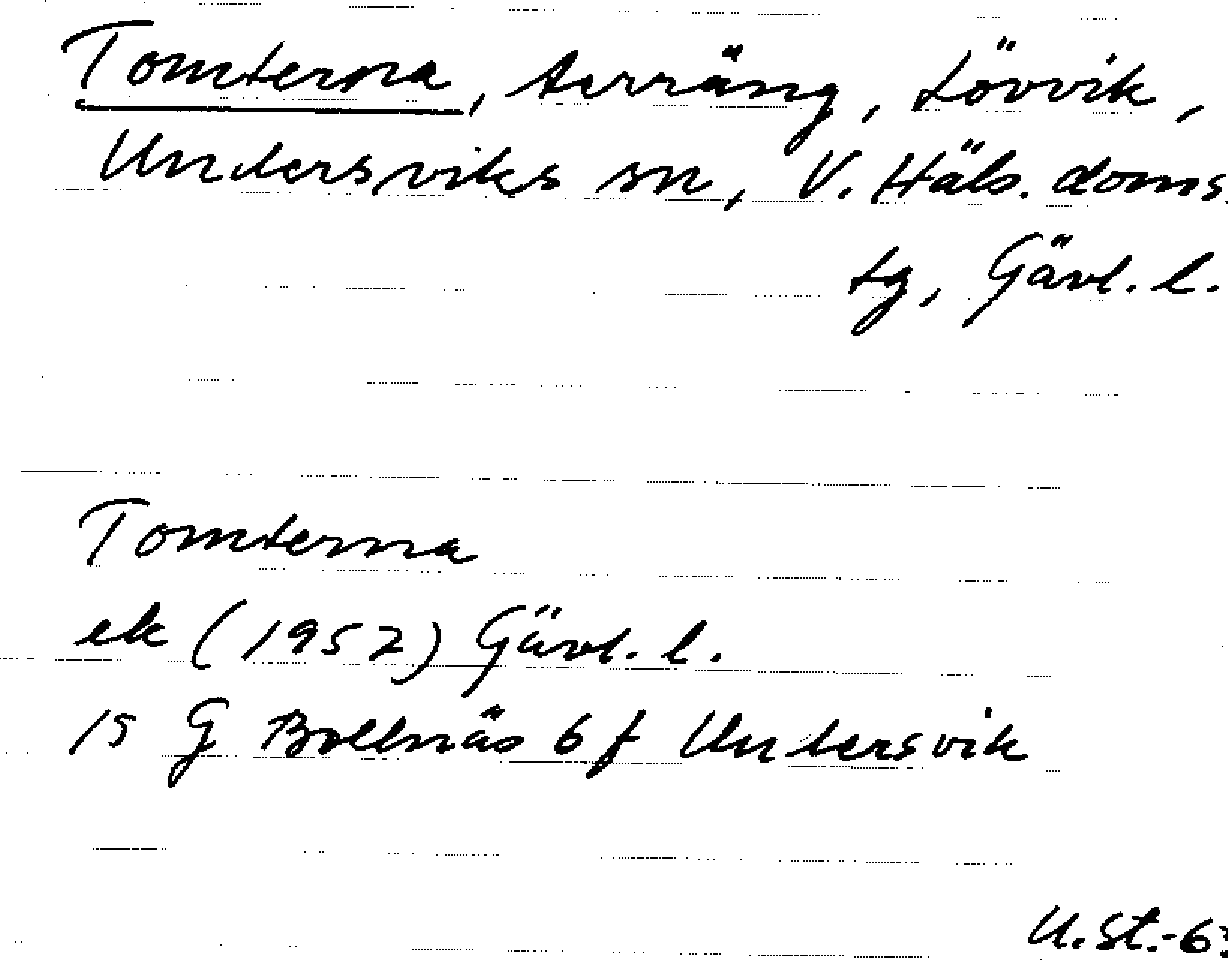 Tomterna, terräng, Lövvik,
Undersviks sn, V. Häls. doms.
tg, Gävl. l.
Tomterna
ek (1957) Gävl. l.
15 G Bollnäs 6 f Undersvik
U.St.-6